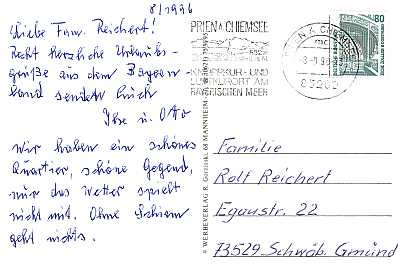 8/1996
Liebe Fam. Reichert!
Recht herzliche Urlaubs-
grüße aus dem Bayern
land sendet Euch
Ihr u. Otto
Wir haben ein schönes
Quartier, schöne Gegend,
nur das Wetter spielt
nicht mit. Ohne Schirm
geht nichts.
PRIEN A CHIEMSEE
KNEIPPKUR- UND
LUFTKURORT AM
BAYRISCHEN MEER
PRIEN A CHIEMSEE
83209
80
WERBEVERLAG R. 68 MANNHEIM
Familie
Rolf Reichert
Egaustr. 22
73529 Schwäb. Gmünd